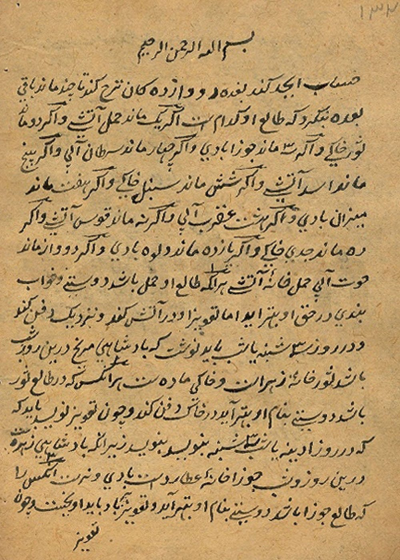 ۱۳۲
بسم الله الرحمن الرحیم
حساب ابجد کند بعده دوازده کان طرح کند تا چند ماند باقی
بعده بنگرد که طالع او کدام است اگر یک ماند حمل آتشی و اگر دو ماند
ثور خاکی و اگر ۳ ماند جوزا بادی و اگر چهار ماند سرطان آبی و اگر پنج
ماند اسد آتشی و اگر شش ماند سنبل خاکی و اگر هفت ماند
میزان بادی و اگر هشت عقرب آبی و اگر نه ماند قوس آتشی و اگر
ده ماند جدی خاکی و اگر یازده ماند دلو بادی و اگر دوازماند
حوت آبی حمل خانهٔ آتشی هرآنکه طالع او حمل باشد دوستی و خواب
بندی در حق او بهتر اید اما تعویذ او در آتش کند و نزدیک دفن کند
و در روز ۳ شنبه باید نوشت که بادشاهی مریخ درین روز
باشد ثور خانهٔ زهره خاکی ماده است هرآنکس که در طالع ثور
باشد دوستی بنام او بهتر آید در خاک دفن کند و چون تعویذ نویسد باید که
که در روز ادینه یا شنبه بنویسد زیرا که بادشاهی زهره
درین روز جوزا خانهٔ عطارد است بادی و نر است آنکس را
که طالع جوزا باشد دوستی بنام او بهتر آید و تعویذ باید او و چون
تعویذ